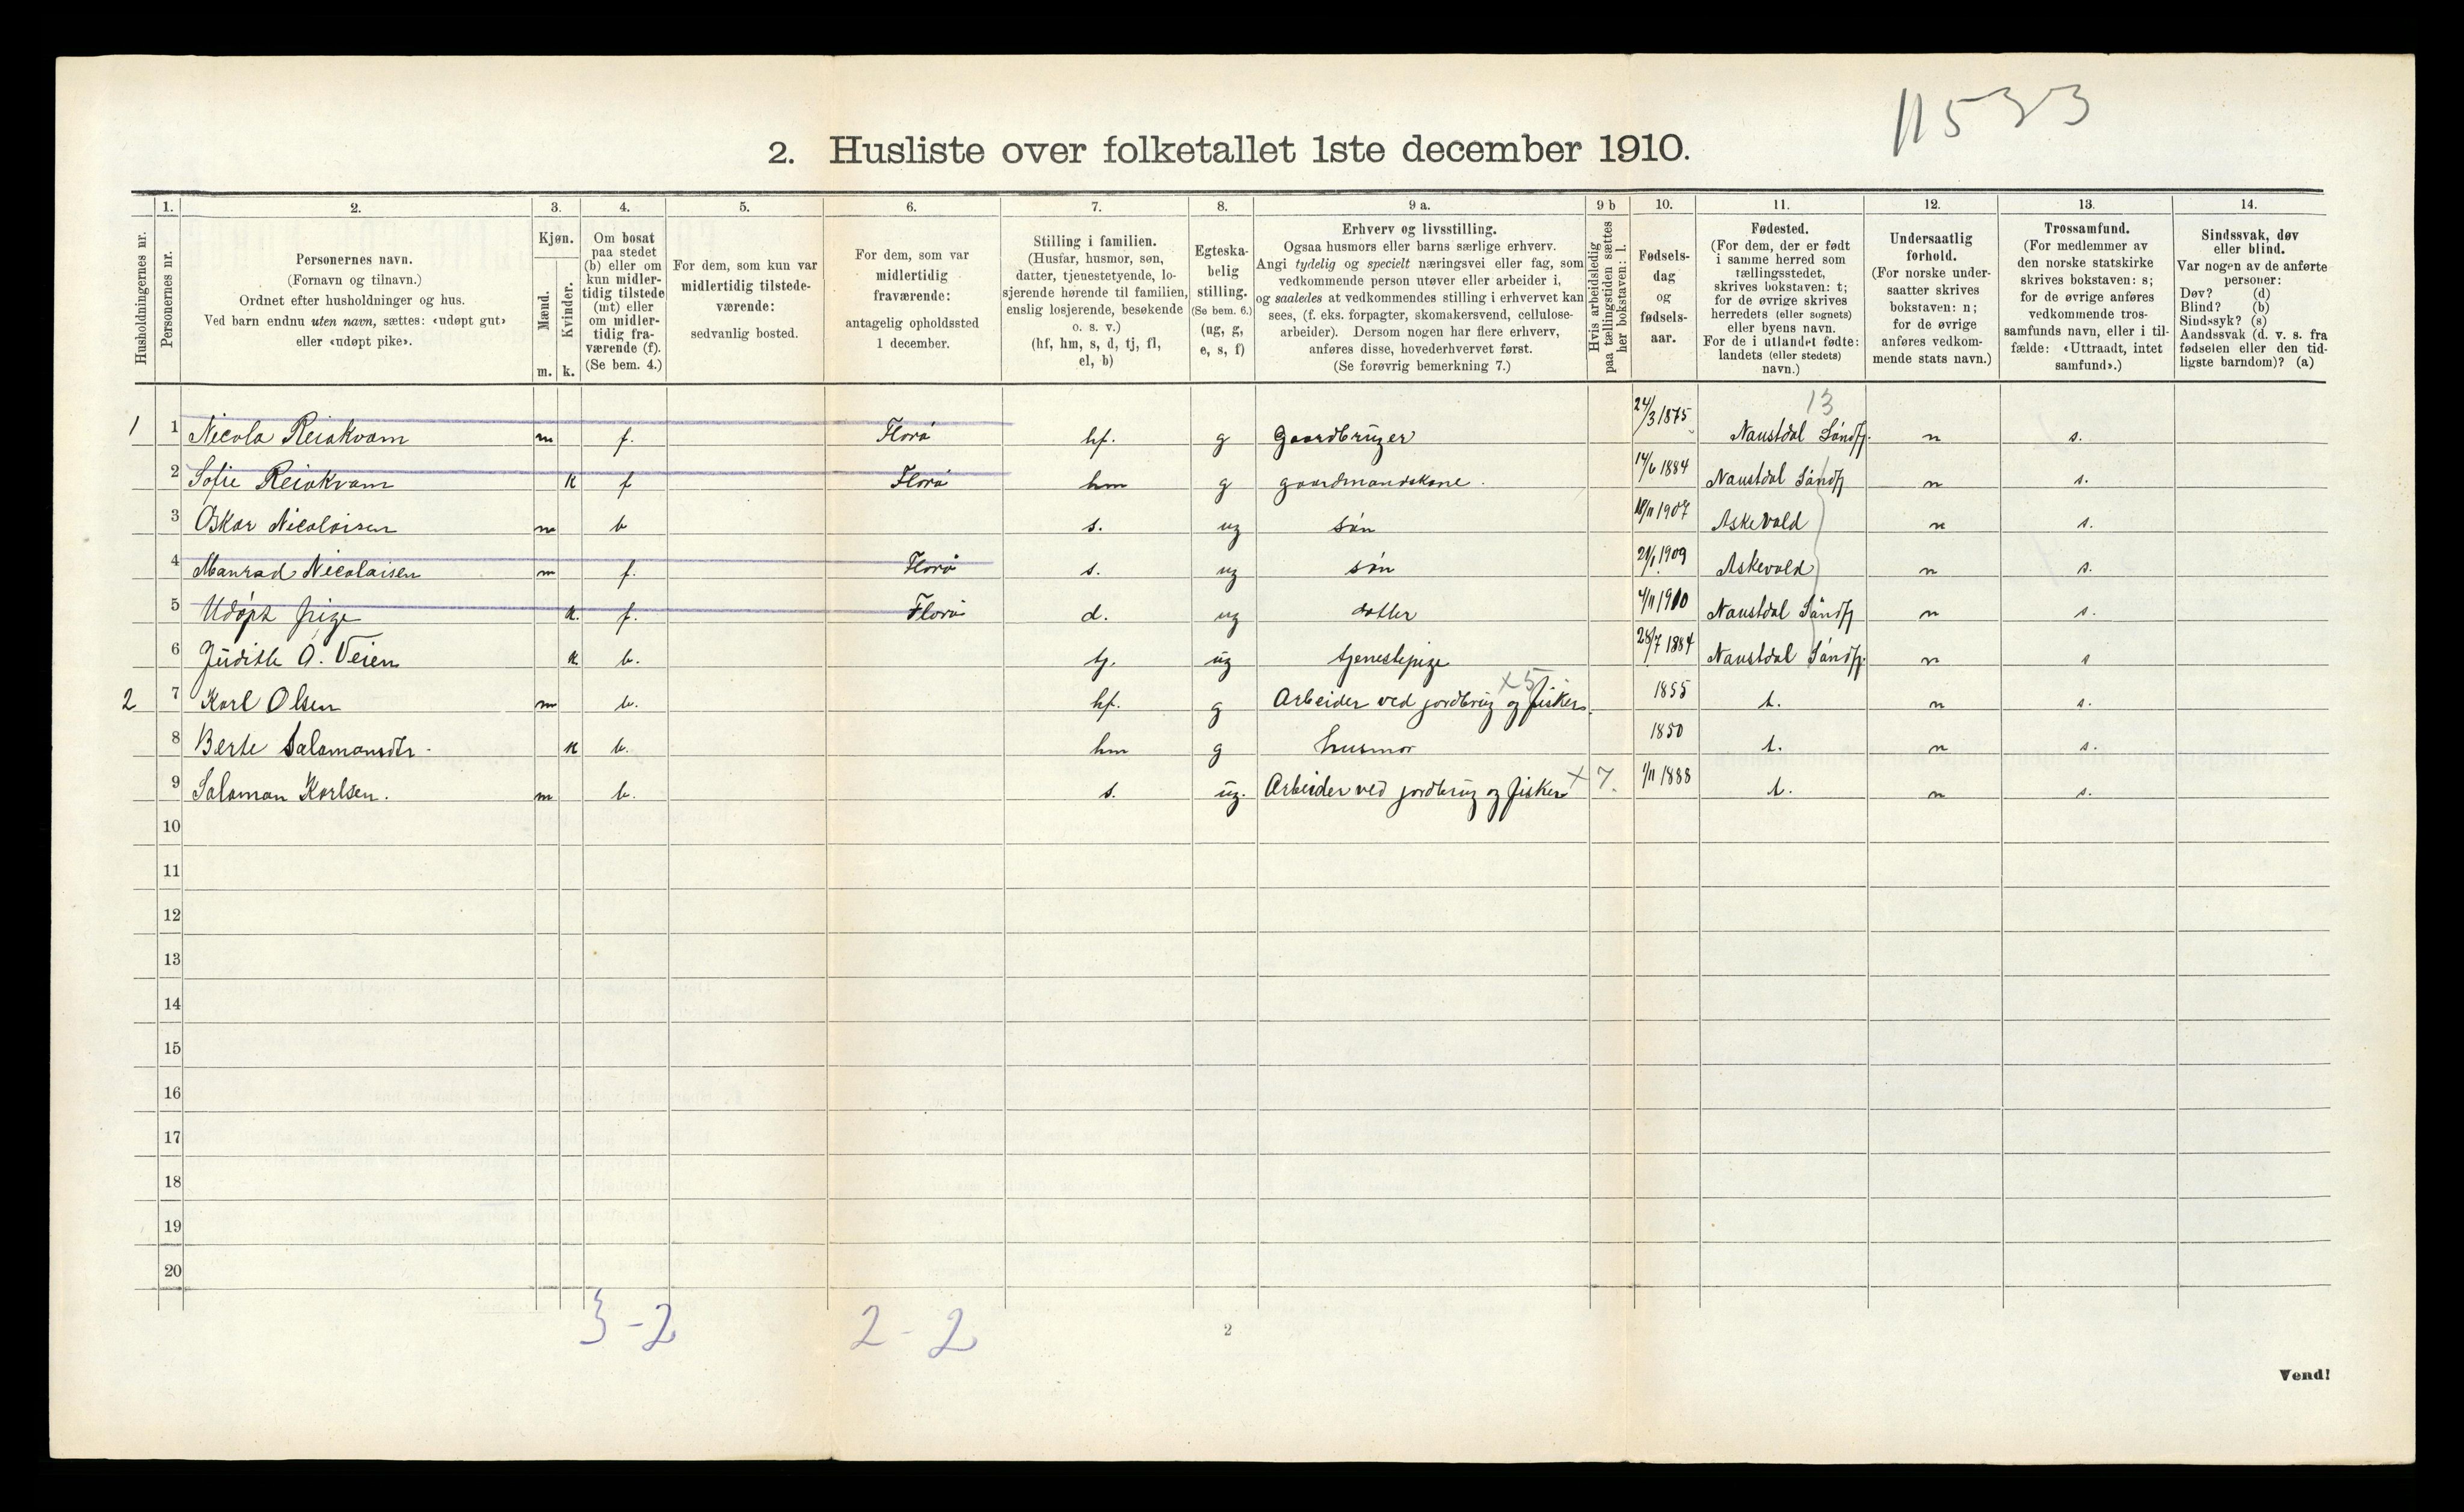 11533
2. Husliste over folketallet 1ste december 1910.
Husholdningernes nr.
1.
Personernes nr.
2.
Personernes navn.
(Fornavn og tilnavn.)
Ordnet efter husholdninger og hus.
Ved barn endnu uten navn, sættes: «udøpt gut»
eller «udøpt pike».
3.
Kjøn.
Mænd.
Kvinder.
m. k.
4.
Om bosat
paa stedet
(b) eller om
kun midler-
tidig tilstede
(mt) eller
om midler-
tidig fra-
værende (f).
(Se bem. 4.)
5.
For dem, som kun var
midlertidig tilstede-
værende:
sedvanlig bosted.
6.
For dem, som var
midlertidig
fraværende:
antagelig opholdssted
1 december.
7.
Stilling i familien.
(Husfar, husmor, søn,
datter, tjenestetyende, lo-
sjerende hørende til familien,
enslig losjerende, besøkende
o. s. v.)
(hf, hm, s, d, tj, fl,
el, b)
8.
Egteska-
belig
stilling.
(Se bem. 6.)
(ug, g,
e, s, f)
9 a.
Erhverv og livsstilling.
Ogsaa husmors eller barns særlige erhverv.
Angi tydelig og specielt næringsvei eller fag, som
vedkommende person utøver eller arbeider i,
og saaledes at vedkommendes stilling i erhvervet kan
sees, (f. eks. forpagter, skomakersvend, cellulose-
arbeider). Dersom nogen har flere erhverv,
anføres disse, hovederhvervet først.
(Se forøvrig bemerkning 7.)
9 b
Hvis arbeidsledig
paa tællingstiden sættes
her bokstaven: l.
10.
Fødsels-
dag
og
fødsels-
aar.
11.
Fødested.
(For dem, der er født
i samme herred som
tællingsstedet,
skrives bokstaven: t;
for de øvrige skrives
herredets (eller sognets)
eller byens navn.
For de i utlandet fødte:
landets (eller stedets)
navn.)
12.
Undersaatlig
forhold.
(For norske under-
saatter skrives
bokstaven: n;
for de øvrige
anføres vedkom-
mende stats navn.)
13.
Trossamfund.
(For medlemmer av
den norske statskirke
skrives bokstaven: s;
for de øvrige anføres
vedkommende tros-
samfunds navn, eller i til-
fælde: «Uttraadt, intet
samfund».)
14.
Sindssvak, døv
eller blind.
Var nogen av de anførte
personer:
Døv? (d)
Blind? (b)
Sindssyk? (s)
Aandssvak (d. v. s. fra
fødselen eller den tid-
ligste barndom)? (a)
13
1 1 Nicola Reiakvam m f. Florø hf. g Gaardbruger 24/3 1875 Naustdal Söndfj. n s.
2 Sofie Reiakvam k f Florø hm g gaardmandskone. 14/6 1884 Naustdal Söndfj n s.
3 Oskar Nicolaisen m b s. ug søn 18/11 1907 Askevold n s.
4 Manrad Nicolaisen m f. Florø s. ug søn 21/1 1909 Askevold n s.
5 Udøpt pige k. f. Florø d. ug datter 4/11 1910 Naustdal Söndfj n s.
6 Judith O. Veien k b. tj. ug tjenestepige 28/7 1884 Naustdal Söndfj. n s
x 5
2 7 Karl Olsen m b. hf. g Arbeider ved jordbrug og fisker. 1855 t. n s.
8 Berte Salamonsdtr. k b. hm g husmor 1850 t. n s.
9 Salamon Karlsen. m b. s. ug. Arbeider ved jordbrug og fisker x 7. 1/11 1888 t. n s.
10
11
12
13
14
15
16
17
18
19
20
3-2
2-2
2
Vend!